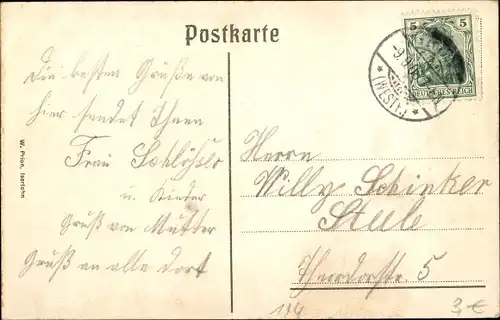 Postkarte
Die besten Grüße von
hier sendet Ihnen
Frau Schlösser
u. Kinder
Gruß von Mutter
Gruß an alle dort
W. Prion, Iserlohn
5 5
DEUTSCHES REICH
(WESTF.)
Herrn
Willy Schinker
Steele
5
114
3,-€